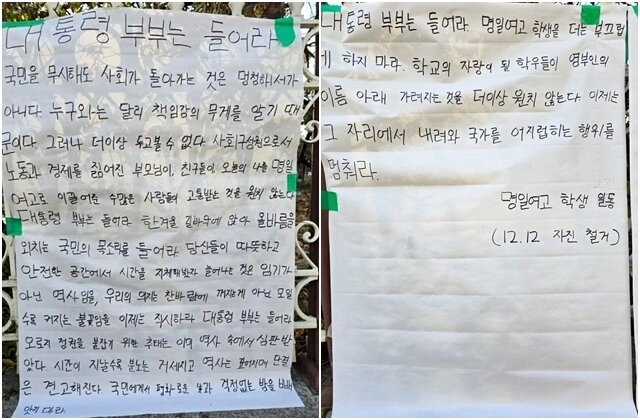 대통령 부부는 들어라
국민을 무시해도 사회가 돌아가는 것은 멍청해서가
아니다. 누구와는 달리 책임감의 무게를 알기 때
문이다. 그러나 더이상 두고볼 수 없다. 사회구성원으로서
노동과 경제를 짊어진 부모님이, 친구들이 오늘의 나를 명일
여고로 이끌어준 수많은 사람들이 고통받는 것을 원치 않는다
대통령 부부는 들어라. 한겨울 길바닥에 앉아 올바름을
외치는 국민의 목소리를 들어라 당신들이 따뜻하고
안전한 공간에서 시간을 지체할수록 늘어나는 것은 임기가
아닌 역사임을, 우리의 의지는 찬바람에 꺼지는게 아닌 모일
수록 커지는 불꽃임을 이제는 직시하라 대통령 부부는 들어라
오로지 정권을 붙잡기 위한 추태는 이미 역사 속에서 심판 받
았다. 시간이 지날수록 분노는 거세지고 역사는 깊어지며 단결
은 견고해진다. 국민에게서 평화로운 낮과 걱정없는 밤을 빼앗
지 마라.
대통령 부부는 들어라. 명일여고 학생을 더는 부끄럽
게 하지 마라. 학교의 자랑이 될 학우들이 영부인의
이름 아래 가려지는 것을 더이상 원치 않는다. 이제는
그 자리에서 내려와 국가를 어지럽히는 행위를
멈춰라.
명일여고 학생 일동
(12.12 자진 철거)